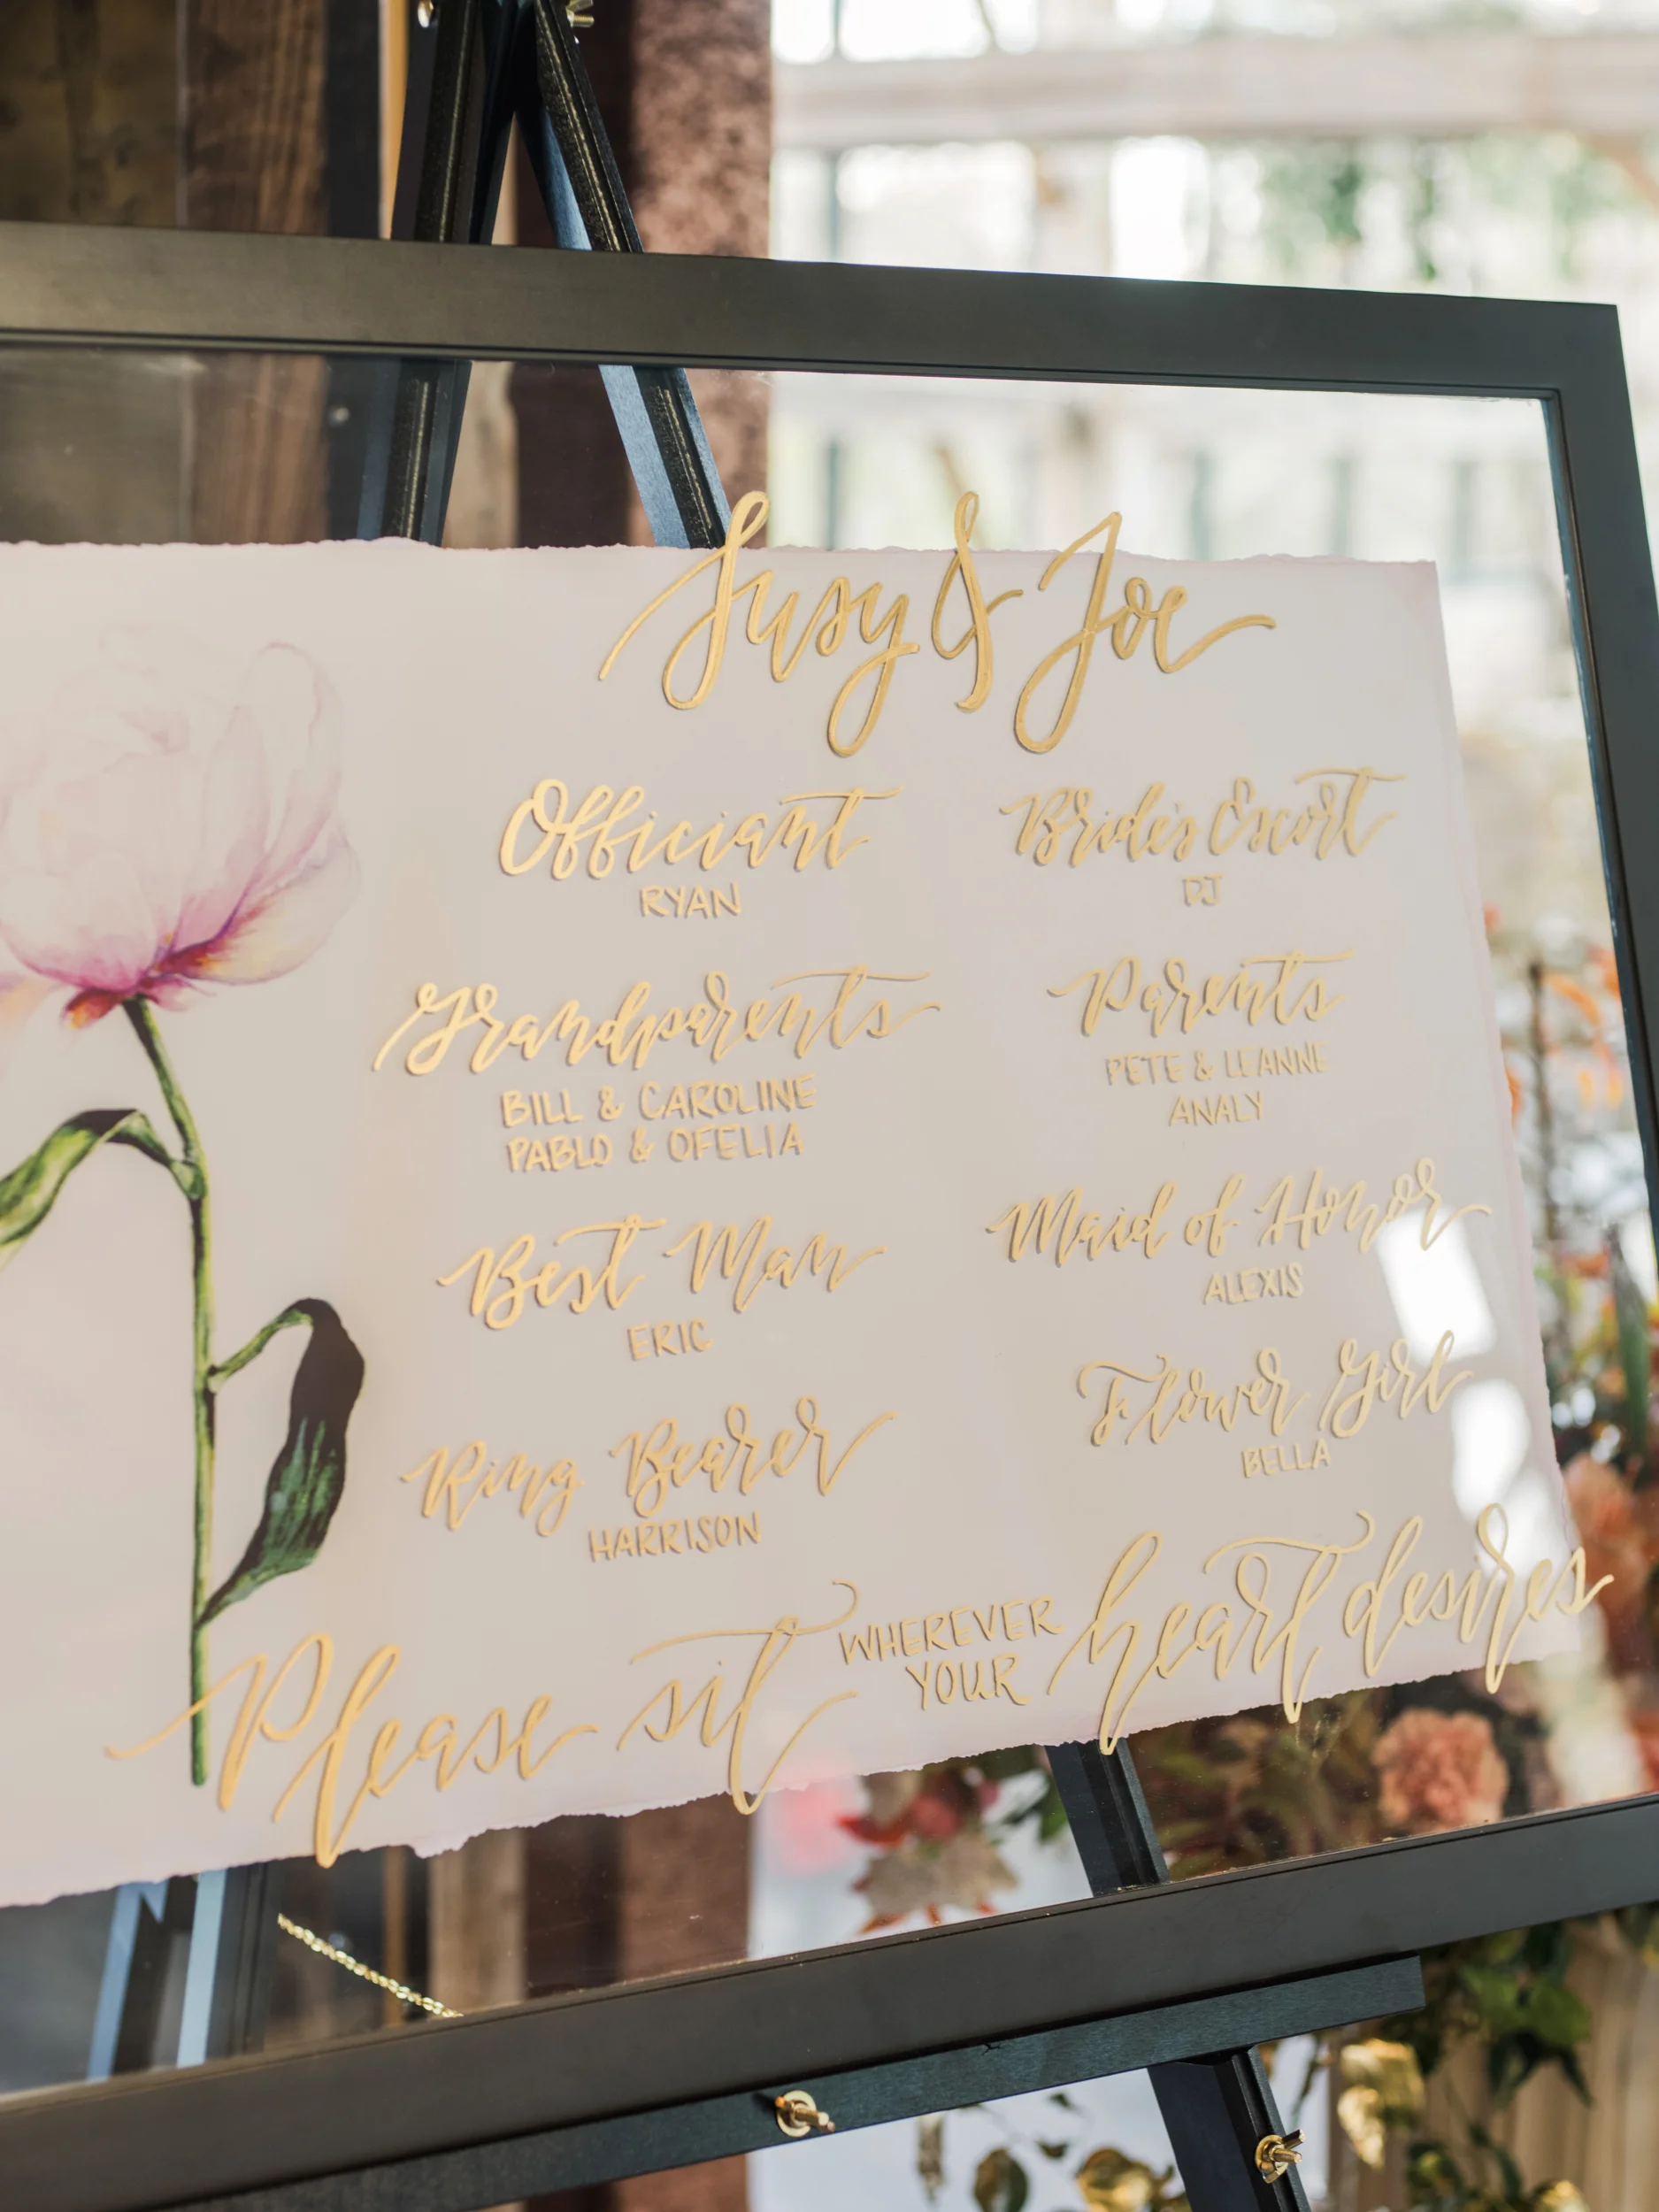 Susy & Joe
Officiant
RYAN
Bride's Escort
DJ
Grandparents
BILL & CAROLINE
PABLO & OFELIA
Parents
PETE & LEANNE
ANALY
Best Man
ERIC
Maid of Honor
ALEXIS
Ring Bearer
HARRISON
Flower Girl
BELLA
Please sit WHEREVER YOUR heart desires